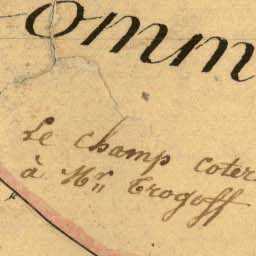 omm
Le champ coter
à Mr. Trogoff